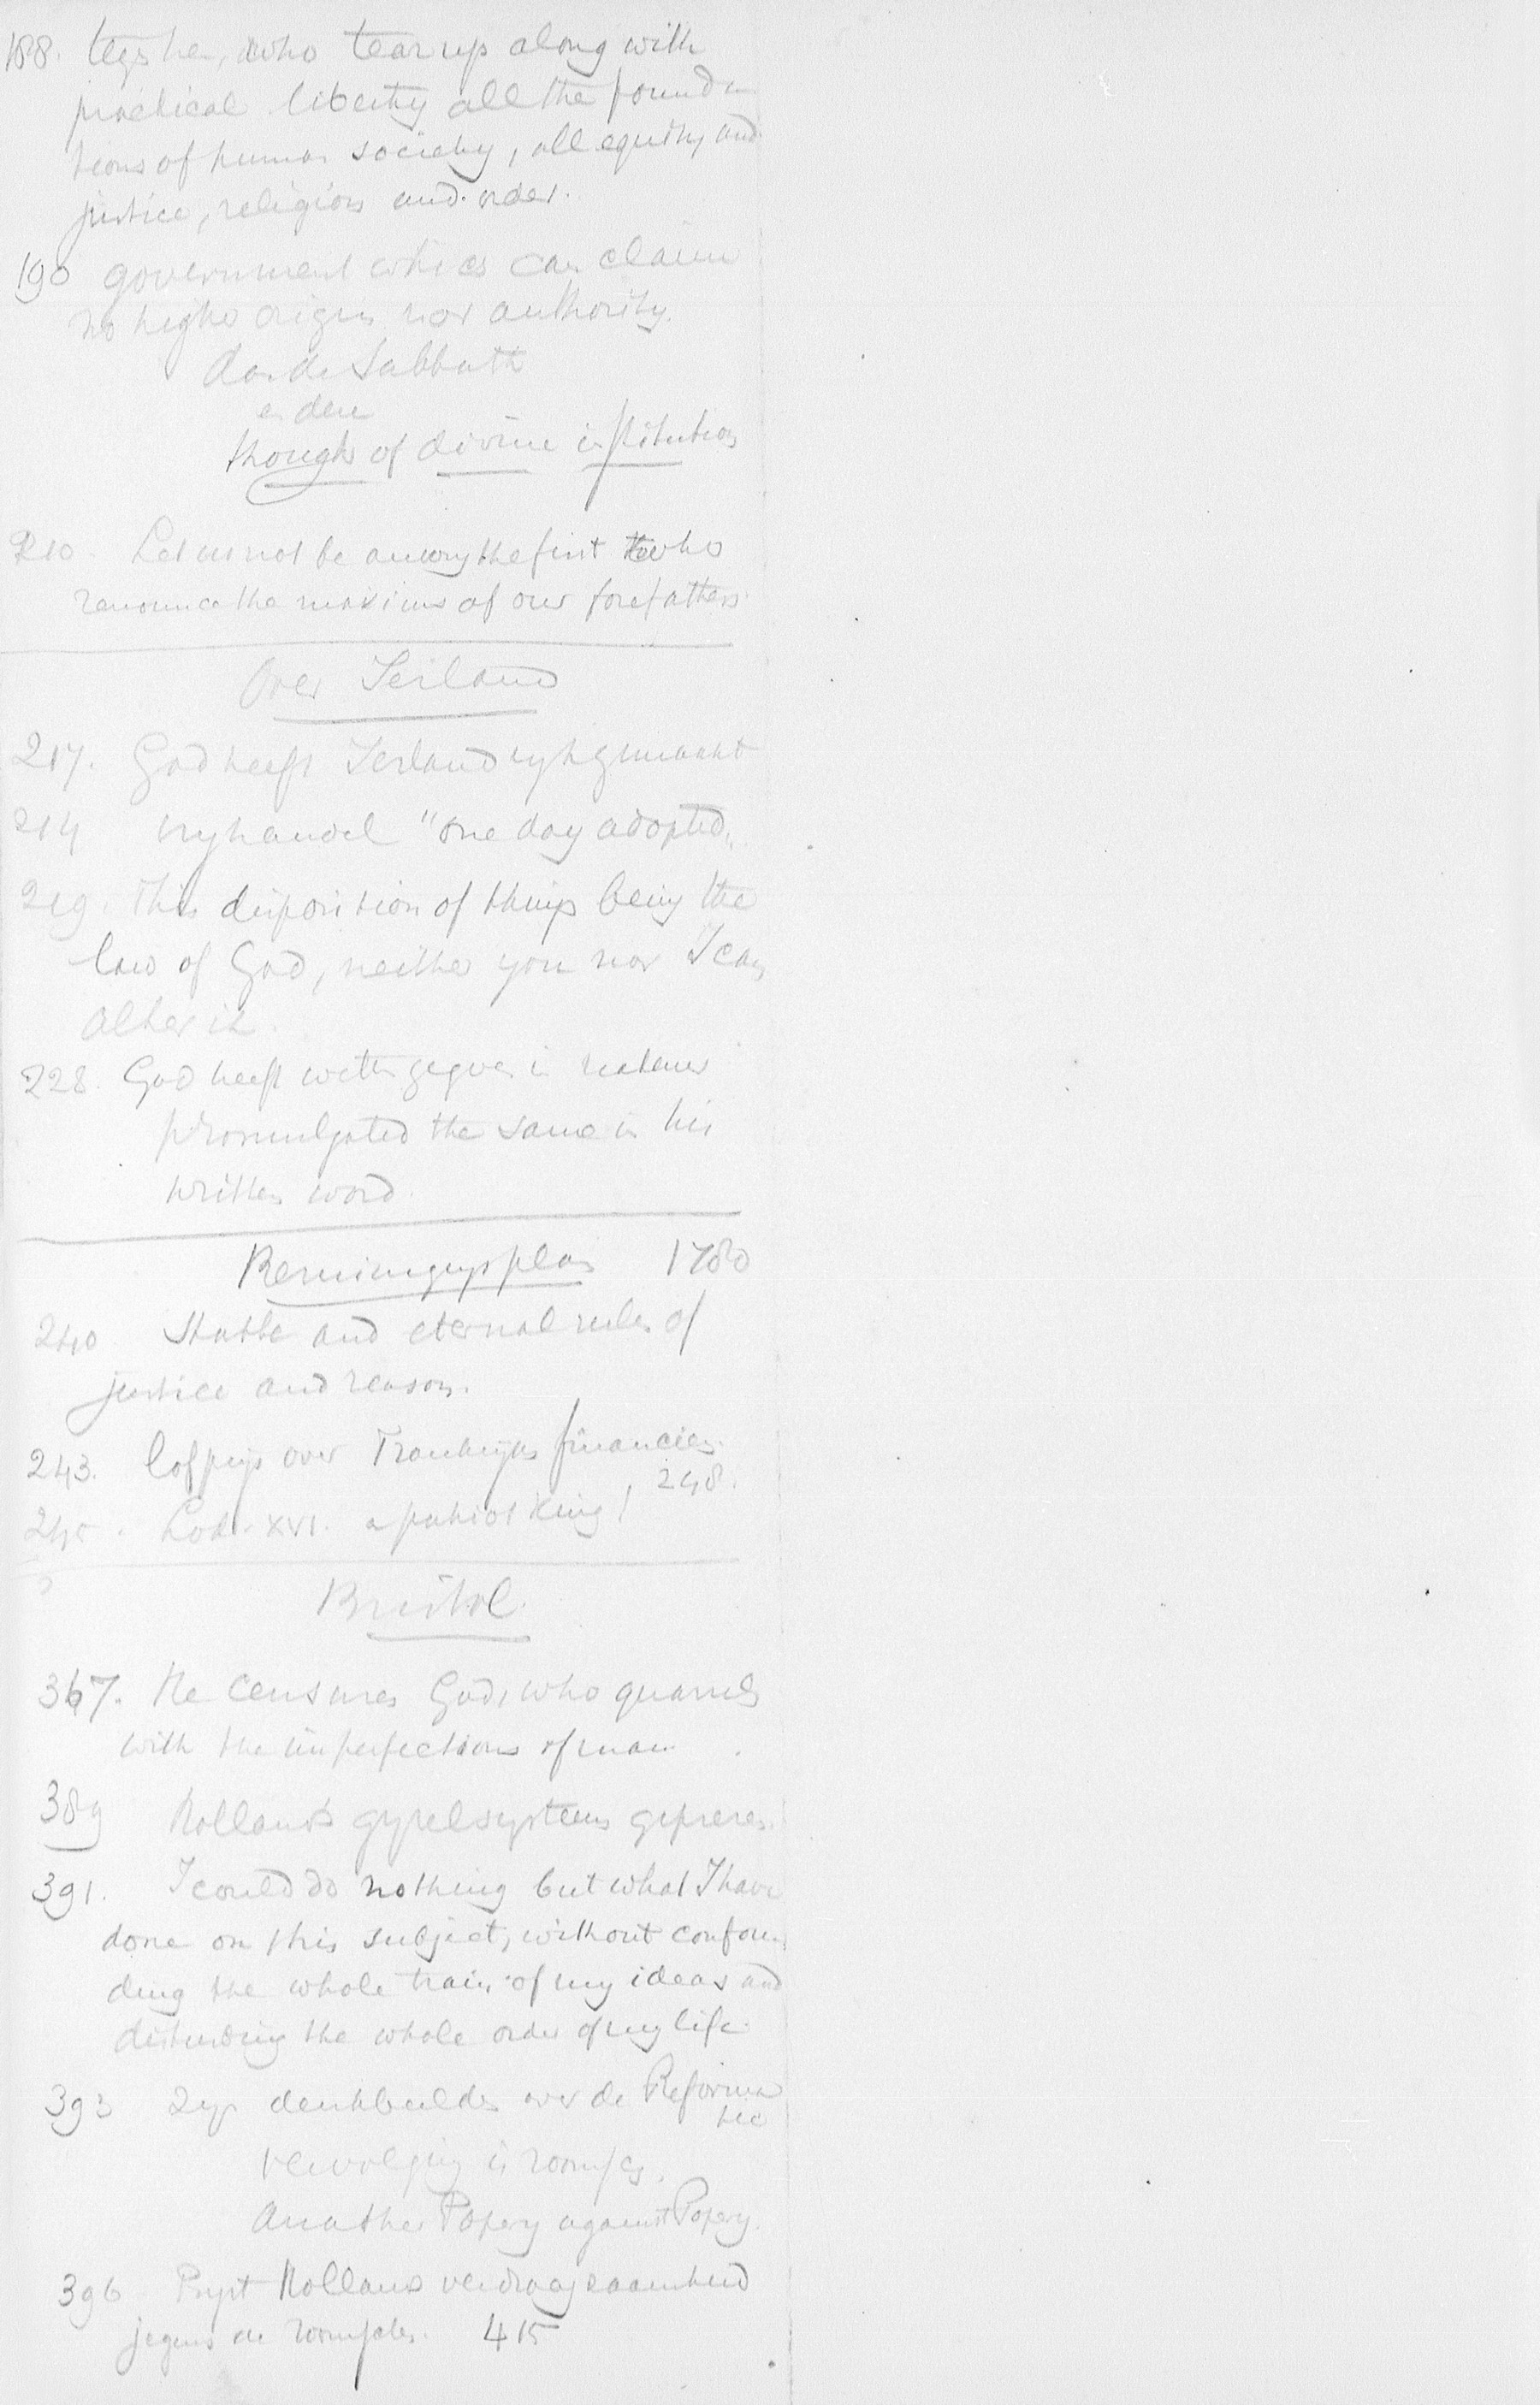 188. tegen hen, who tear up along with
practical liberty all the founda
tions of human society, all equity and
justice, religion and order.
190 government which can claim
no higher origin nor authority.
dan de Sabbath
en deze
though of divine institution
210. Let us not be among the first who
renounce the maxims of our forefathers.
Over Ierland
217. God heeft Ierland gemaakt
214 vryhandel "one day adopted"
219. This disposition of things being the
law of God, neither you nor I can
alter it.
228. God heeft wetten gegeven in
promulgated the same in his
written word.
1780
240 Stable and eternal rules of
justice and reason.
243. over Frankrijks financien.
245. Lod. XVI. a patriot King! 248.
Bristol
367. He censures God, who quarrels
with the imperfections of man.
389 Hollands systeem geprezen.
391. I could do nothing but what I have
done on this subject, without confoun
ding the whole train of my ideas and
disturbing the whole order of my life.
393 Zijn denkbeelden over de Reforma
tie
vervolging is roomsch.
Another Popery against Popery.
396 Prijst Hollands verdraagzaamheid
jegens de roomschen. 415